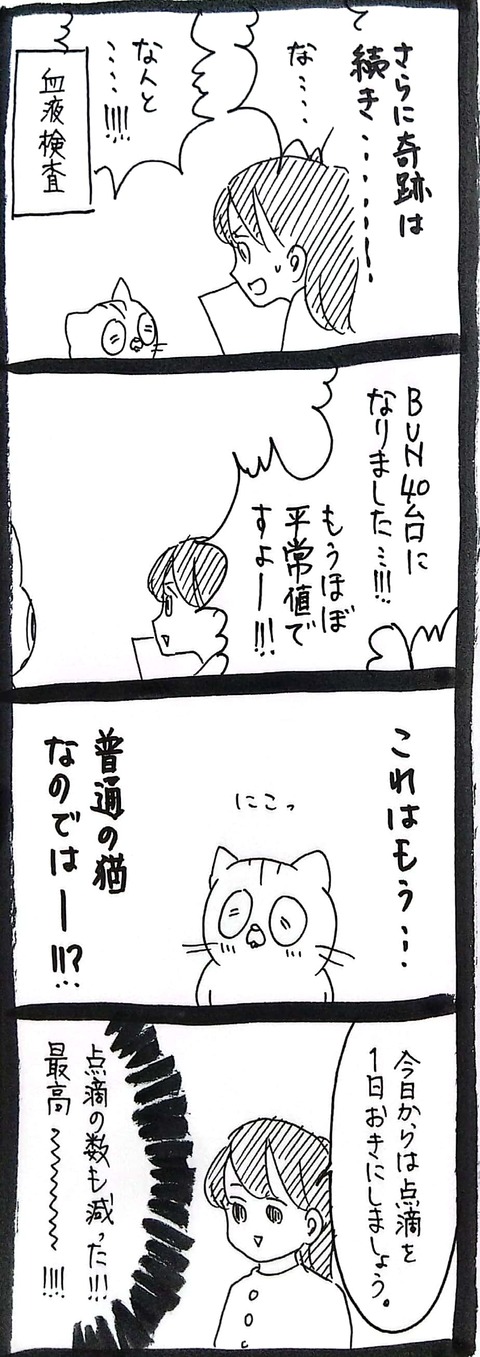 さらに奇跡は
続き………！
な……
なんと
……!!!!
血液検査
BUN40台に
なりました…!!!
もうほぼ
平常値で
すよー!!!
これはもう…
にこっ
普通の猫
なのではー!!?
今日からは点滴を
1日おきにしましょう。
点滴の数も減った!!!
最高〜〜〜!!!!